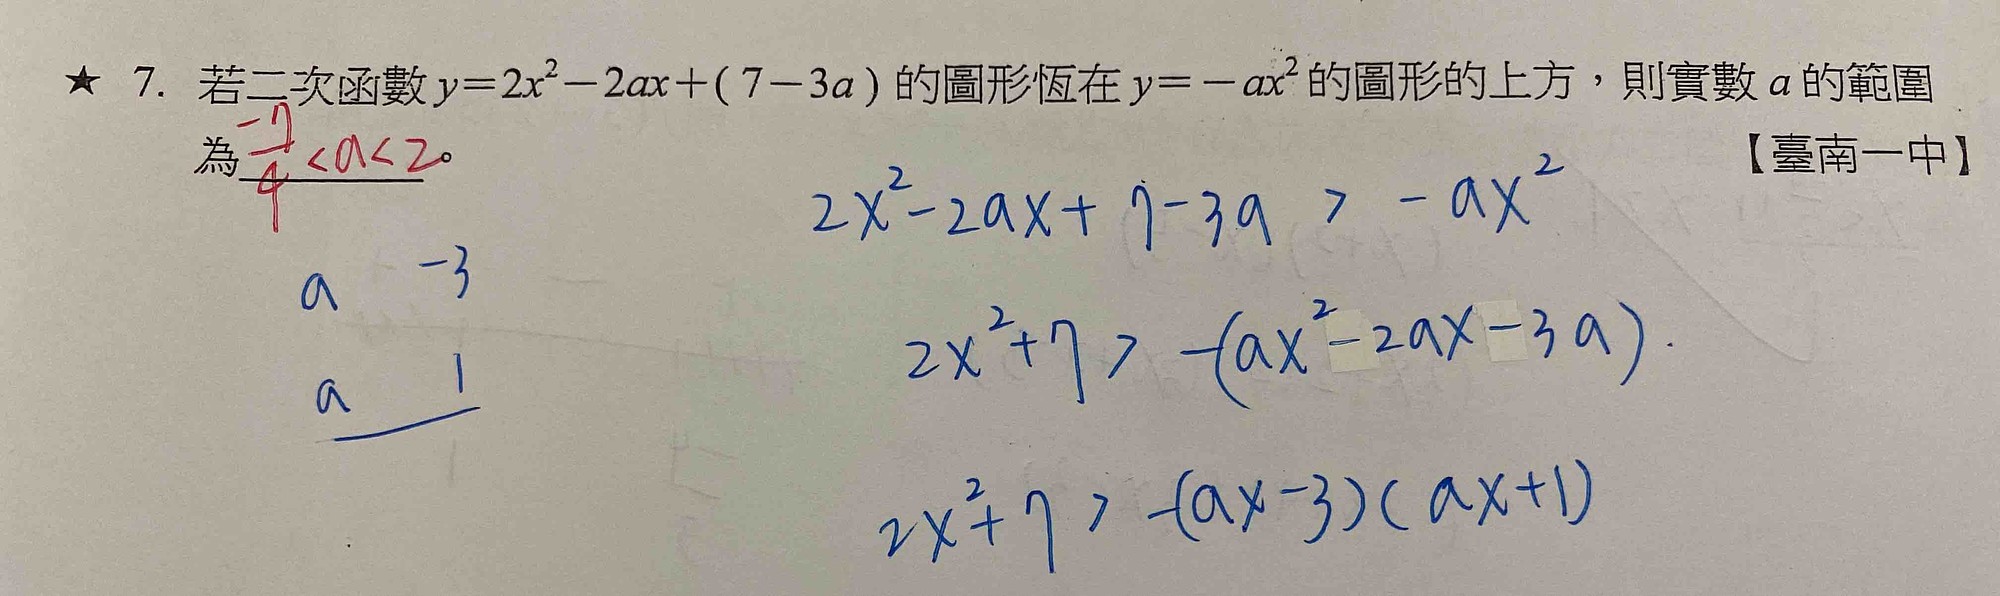 ★ 7. 若二次函數 y=2x²-2ax+(7-3a) 的圖形恆在 y=-ax² 的圖形的上方，則實數 a 的範圍
為 -7/4 <a<2。
【臺南一中】
2x²-2ax+7-3a > -ax²
a -3
2x²+7 > -(ax²-2ax-3a).
a 1
2x²+7 > -(ax-3)(ax+1)